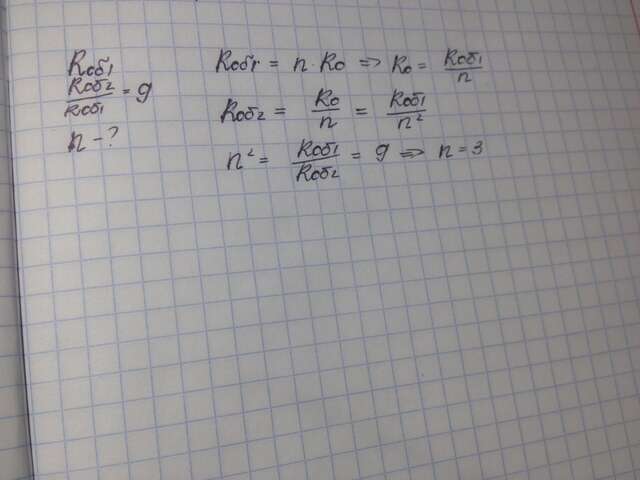 Rоб1
Rоб2/Rоб1 = 9
n - ?
Rоб1 = n · R0 => R0 = Rоб1/n
Rоб2 = R0/n = Rоб1/n²
n² = Rоб1/Rоб2 = 9 => n = 3